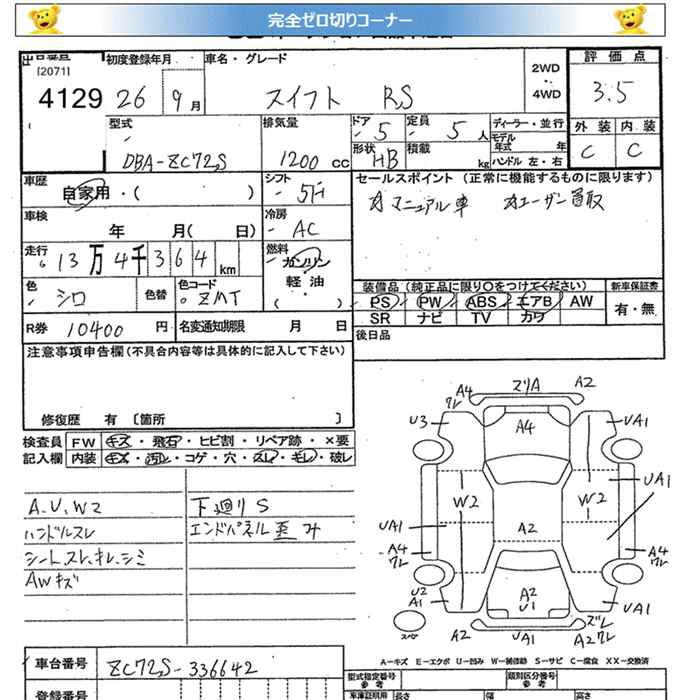 完全ゼロ切りコーナー
[2071] 初度登録年月 車名・グレード 評価点
4129 26 9月 スイフト RS 2WD・4WD 3.5
型式 排気量 ドア 定員 ディーラー・並行 外装 内装
DBA-ZC72S 1200cc 5 5人 モデル年式 年 C C
形状 積載 HB kg ハンドル 左・右
車歴 シフト セールスポイント (正常に機能するものに限ります)
自家用・( ) 5F オマニュアル車 オユーザー買取
車検 冷房
年 月( 日) AC
走行 燃料
13万4千364km ガソリン
軽油
( )
色 色替 色コード 装備品(純正品に限り○をつけてください) 新車保証書
シロ ZMT PS PW ABS エアB AW 有・無
SR ナビ TV カワ
R券 10400円 名変通知期限 月 日 後日品
注意事項申告欄(不具合内容等は具体的に記入して下さい)
修復歴 有 [箇所 ]
検査員 FW キズ・飛石・ヒビ割・リペア跡・×要
記入欄 内装 キズ・汚レ・コゲ・穴・スレ・キレ・破レ
A.U.W2 下廻りS
ハンドルスレ エンドパネル歪み
シートスレ、キレ、シミ
AWキズ
A4 ワレ ズリA A2
U3 A4 UA1
W2 W2 UA1
UA1 A2
A4 ワレ A4 ワレ
U2 A1 A2 U1 UA1
A2 UA1 ズレ A2 ワレ
A－キズ E－エクボ U－凹み W－補修跡 S－サビ C－腐食 XX－交換済
車台番号 ZC72S-336642 型式指定番号 参考 類別区分番号 参考
登録番号 車庫証明用 長さ 幅 高さ